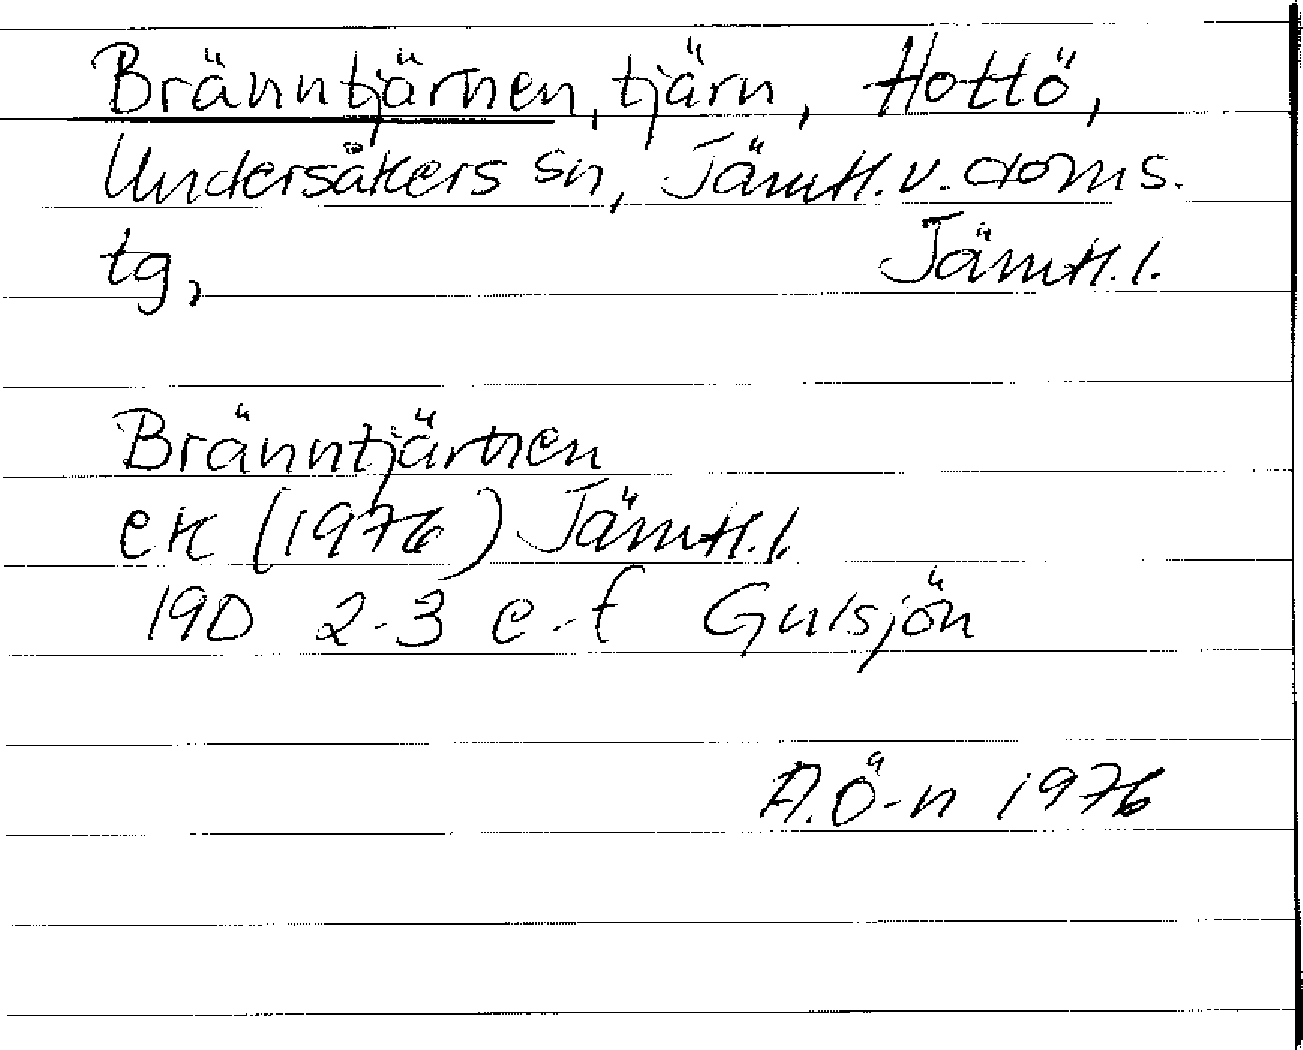 Bränntjärnen, tjärn, Hottö,
Undersåkers sn, Jämtl. v. doms.
tg, Jämtl. l.
Bränntjärnen
ek (1976) Jämtl. l.
19D 2-3 e-f Gulsjön
A.Ö-n 1976